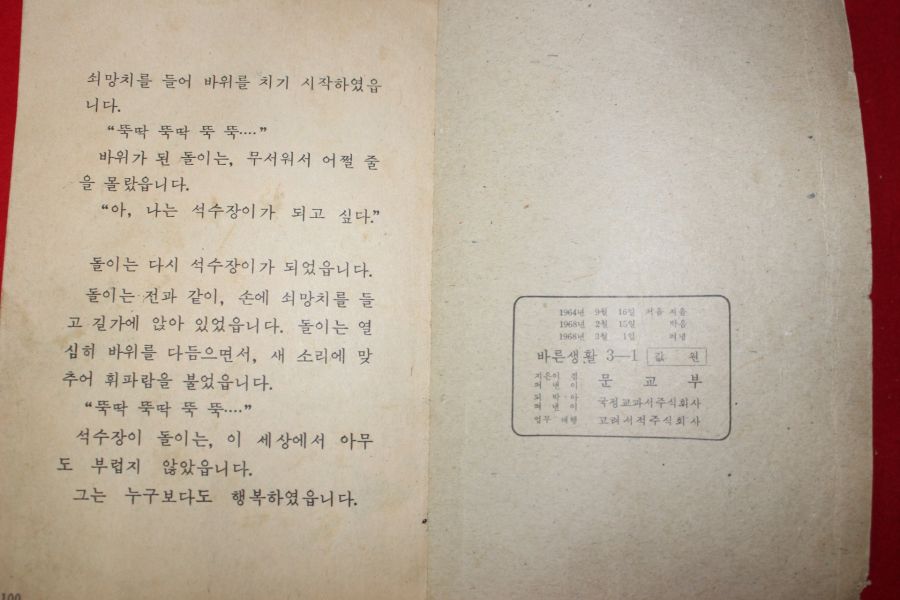 쇠망치를 들어 바위를 치기 시작하였읍
니다.
“뚝딱 뚝딱 뚝 뚝‥‥”
바위가 된 돌이는, 무서워서 어쩔 줄
을 몰랐읍니다.
“아, 나는 석수장이가 되고 싶다.”
돌이는 다시 석수장이가 되었읍니다.
돌이는 전과 같이, 손에 쇠망치를 들
고 길가에 앉아 있었읍니다. 돌이는 열
심히 바위를 다듬으면서, 새 소리에 맞
추어 휘파람을 불었읍니다.
“뚝딱 뚝딱 뚝 뚝‥‥”
석수장이 돌이는, 이 세상에서 아무
도 부럽지 않았읍니다.
그는 누구보다도 행복하였읍니다.
100
1964년 9월 16일 처음 지음
1968년 2월 15일 박음
1968년 3월 1일 펴냄
바른생활 3—1 값 원
지은이 겸
펴낸이 문교부
되박아
펴낸이 국정교과서주식회사
업무 대행 고려서적주식회사